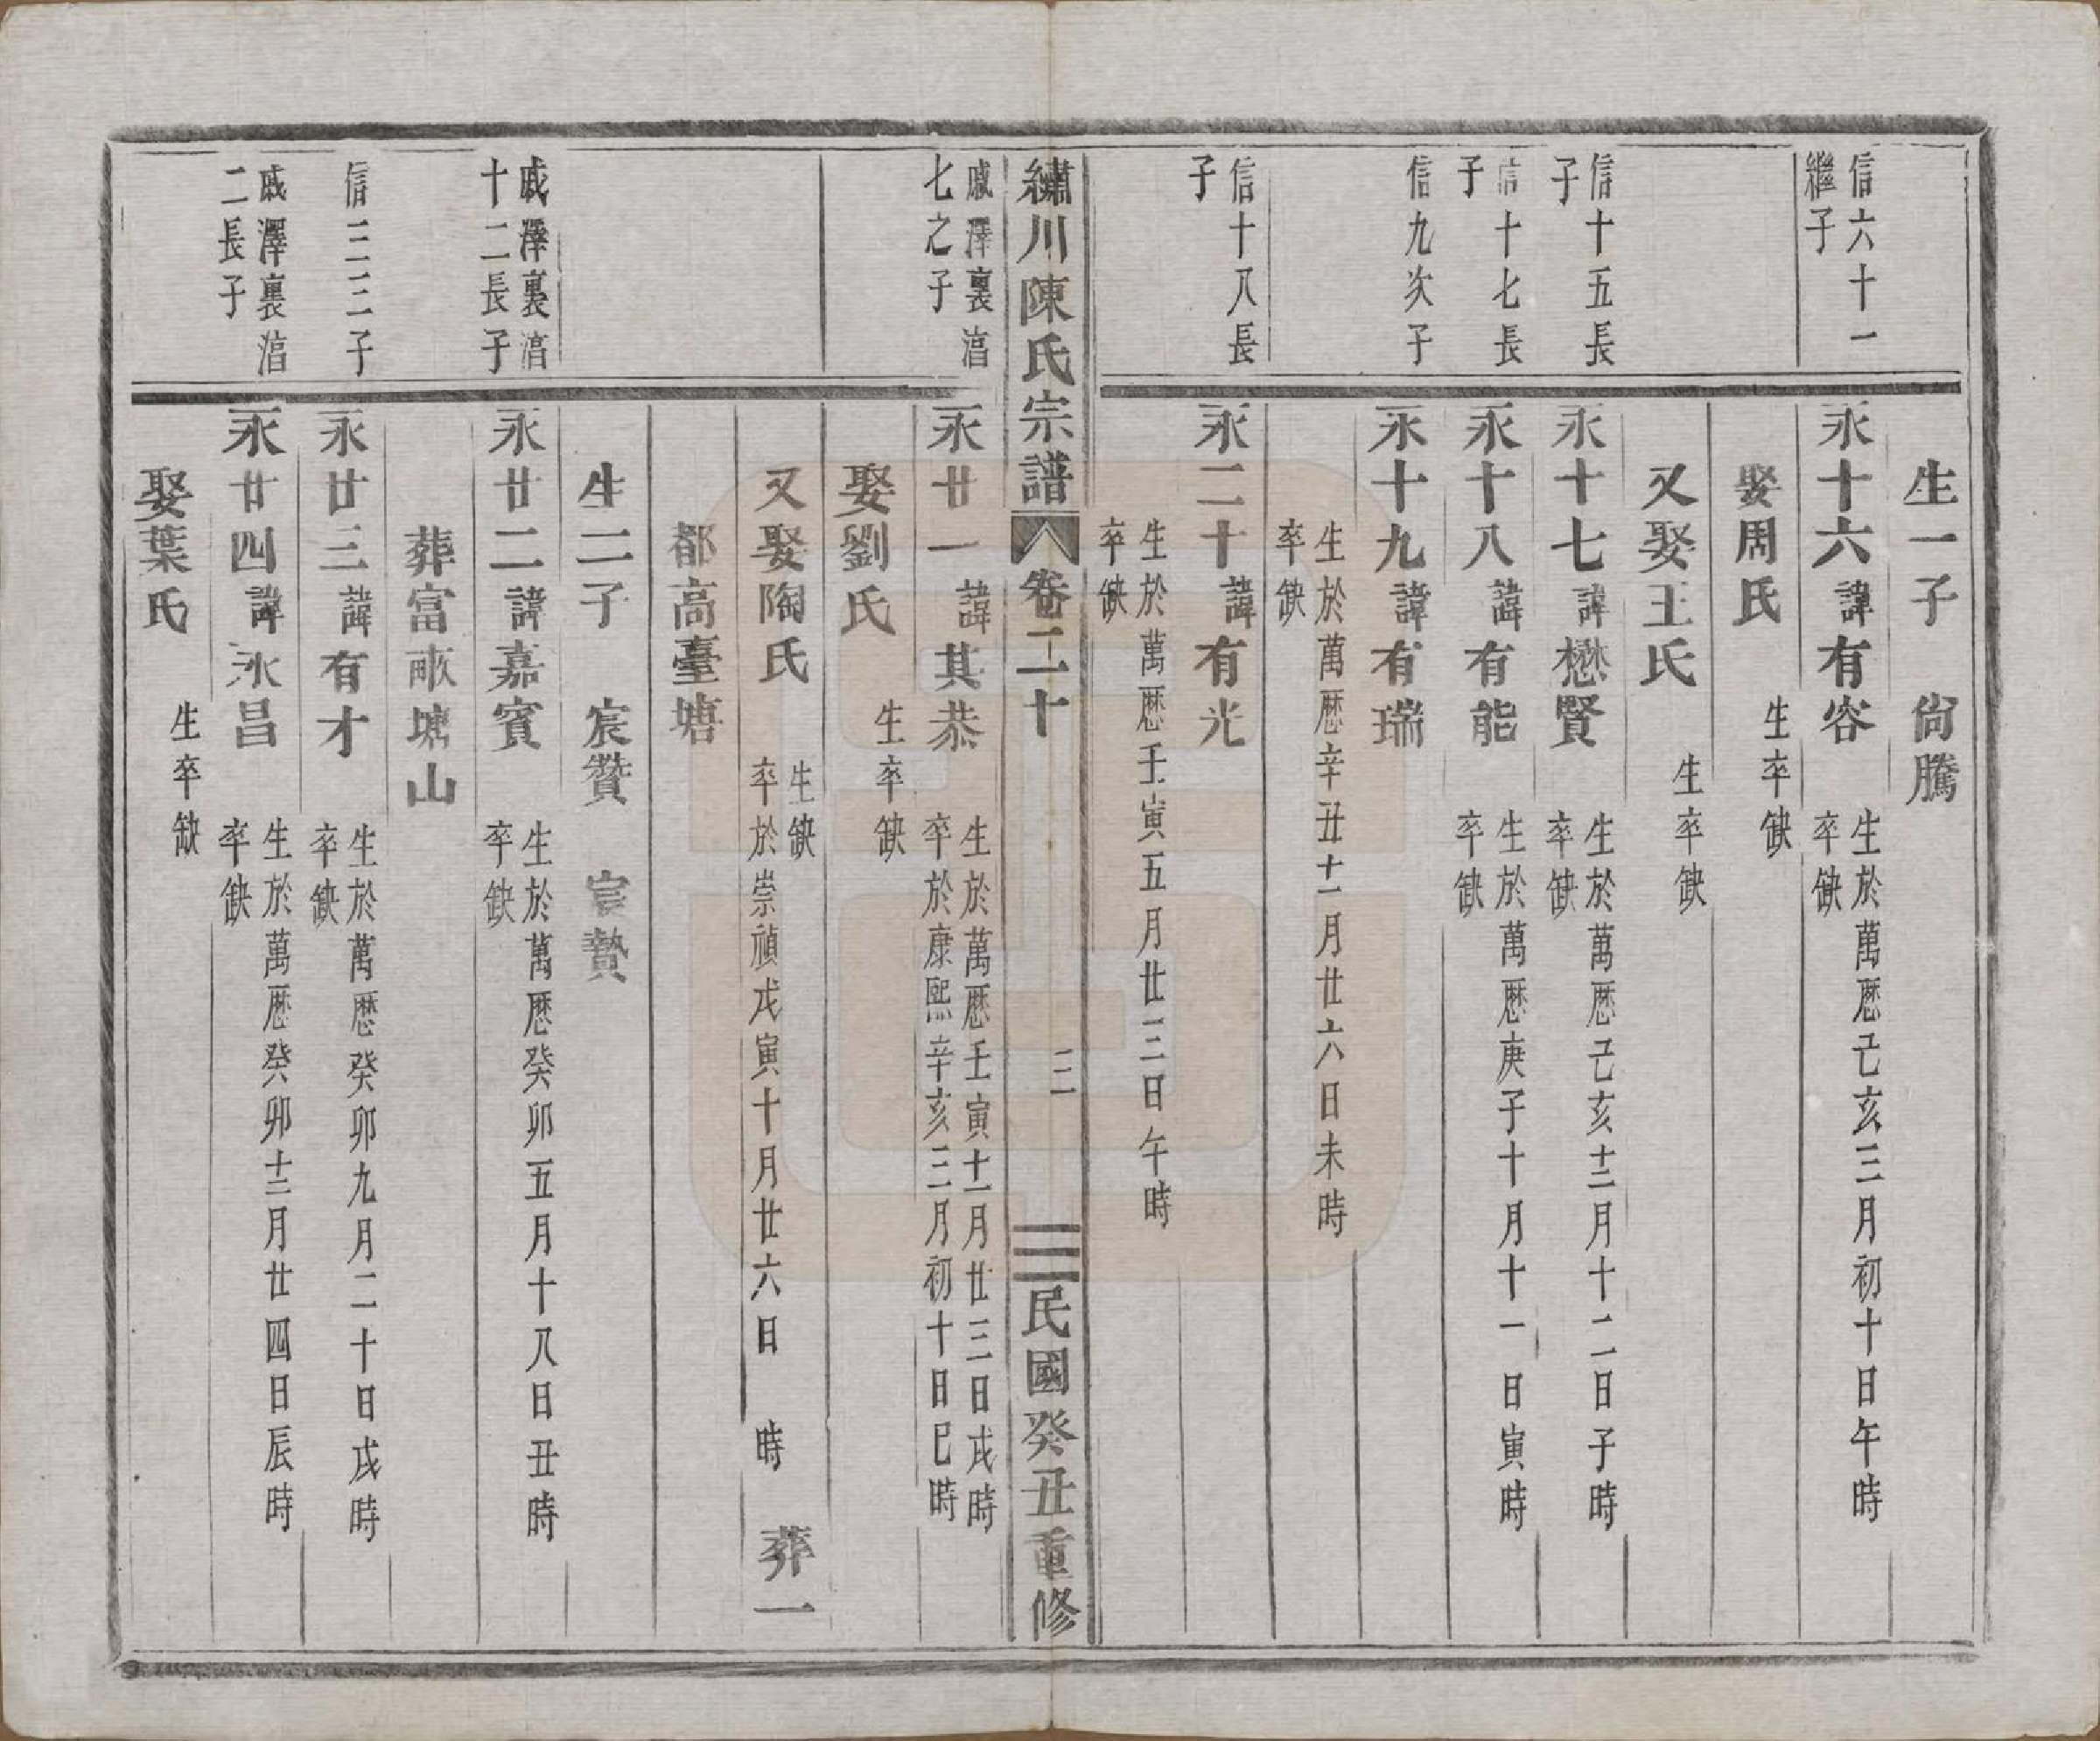 生一子　尙騰
信六十一
繼子
永十六諱有容　生於萬厯己亥三月初十日午時
卒缺
娶周氏　生卒缺
又娶王氏　生卒缺
信十五長
子
永十七諱懋賢　生於萬厯己亥十二月十二日子時
卒缺
信十七長
子
永十八諱有能　生於萬厯庚子十月十一日寅時
卒缺
信九次子
永十九諱有瑞
生於萬厯辛丑十一月廿六日未時
卒缺
信十八長
子
永二十諱有光
生於萬厯壬寅五月廿三日午時
卒缺
繡川陳氏宗譜　卷二十　二　民國癸丑重修
戚澤裏湻
七之子
永廿一諱其恭　生於萬厯壬寅十一月廿三日戌時
卒於康熙辛亥三月初十日巳時
娶劉氏　生卒缺
又娶陶氏　生缺
卒於崇禎戊寅十月廿六日　時　葬一
都高臺塘
生二子　宸贊　宸贄
戚澤裏湻
十二長子
永廿二諱嘉賓　生於萬厯癸卯五月十八日丑時
卒缺
葬富畈塘山
信三三子
永廿三諱有才　生於萬厯癸卯九月二十日戌時
卒缺
戚澤裏湻
二長子
永廿四諱永昌　生於萬厯癸卯十二月廿四日辰時
卒缺
娶葉氏　生卒缺